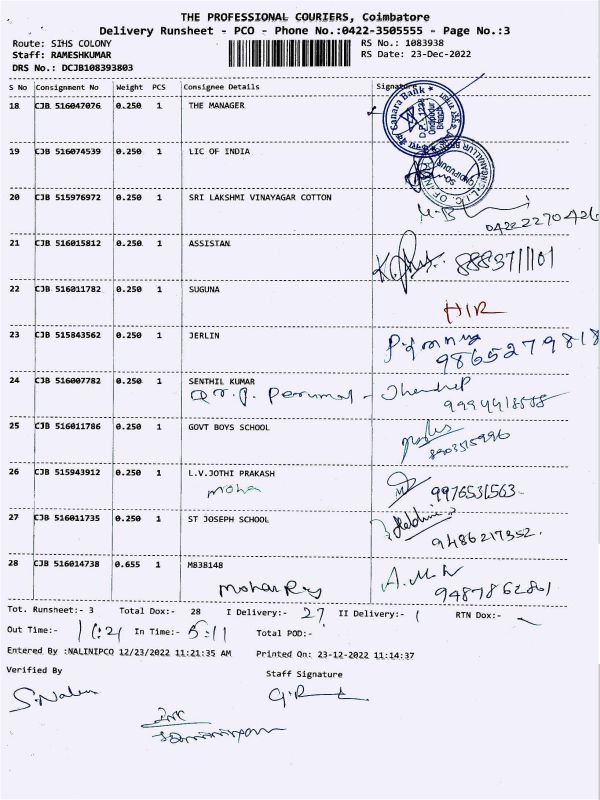 THE PROFESSIONAL COURIERS, Coimbatore
Delivery Runsheet - PCO - Phone No.:0422-3505555 - Page No.:3
Route: SIHS COLONY RS No.: 1083938
Staff: RAMESHKUMAR RS Date: 23-Dec-2022
DRS No.: DCJB108393803
S No Consignment No Weight PCS Consignee Details Signature
18 CJB 516047076 0.250 1 THE MANAGER
Canara Bank
19 CJB 516074539 0.250 1 LIC OF INDIA
20 CJB 515976972 0.250 1 SRI LAKSHMI VINAYAGAR COTTON
0422 2270426
21 CJB 516015812 0.250 1 ASSISTAN
8883711101
22 CJB 516011782 0.250 1 SUGUNA
HIR
23 CJB 515843562 0.250 1 JERLIN
9865279818
24 CJB 516007782 0.250 1 SENTHIL KUMAR
25 CJB 516011786 0.250 1 GOVT BOYS SCHOOL
26 CJB 515943912 0.250 1 L.V.JOTHI PRAKASH
9976531563
27 CJB 516011735 0.250 1 ST JOSEPH SCHOOL
9486217352.
28 CJB 516014738 0.655 1 M838148
Tot. Runsheet:- 3 Total Dox:- 28 I Delivery:- 27 II Delivery:- 1 RTN Dox:-
Out Time:- 11:21 In Time:- 5:11 Total POD:-
Entered By :NALINIPCO 12/23/2022 11:21:35 AM Printed On: 23-12-2022 11:14:37
Verified By Staff Signature
S.Nalin